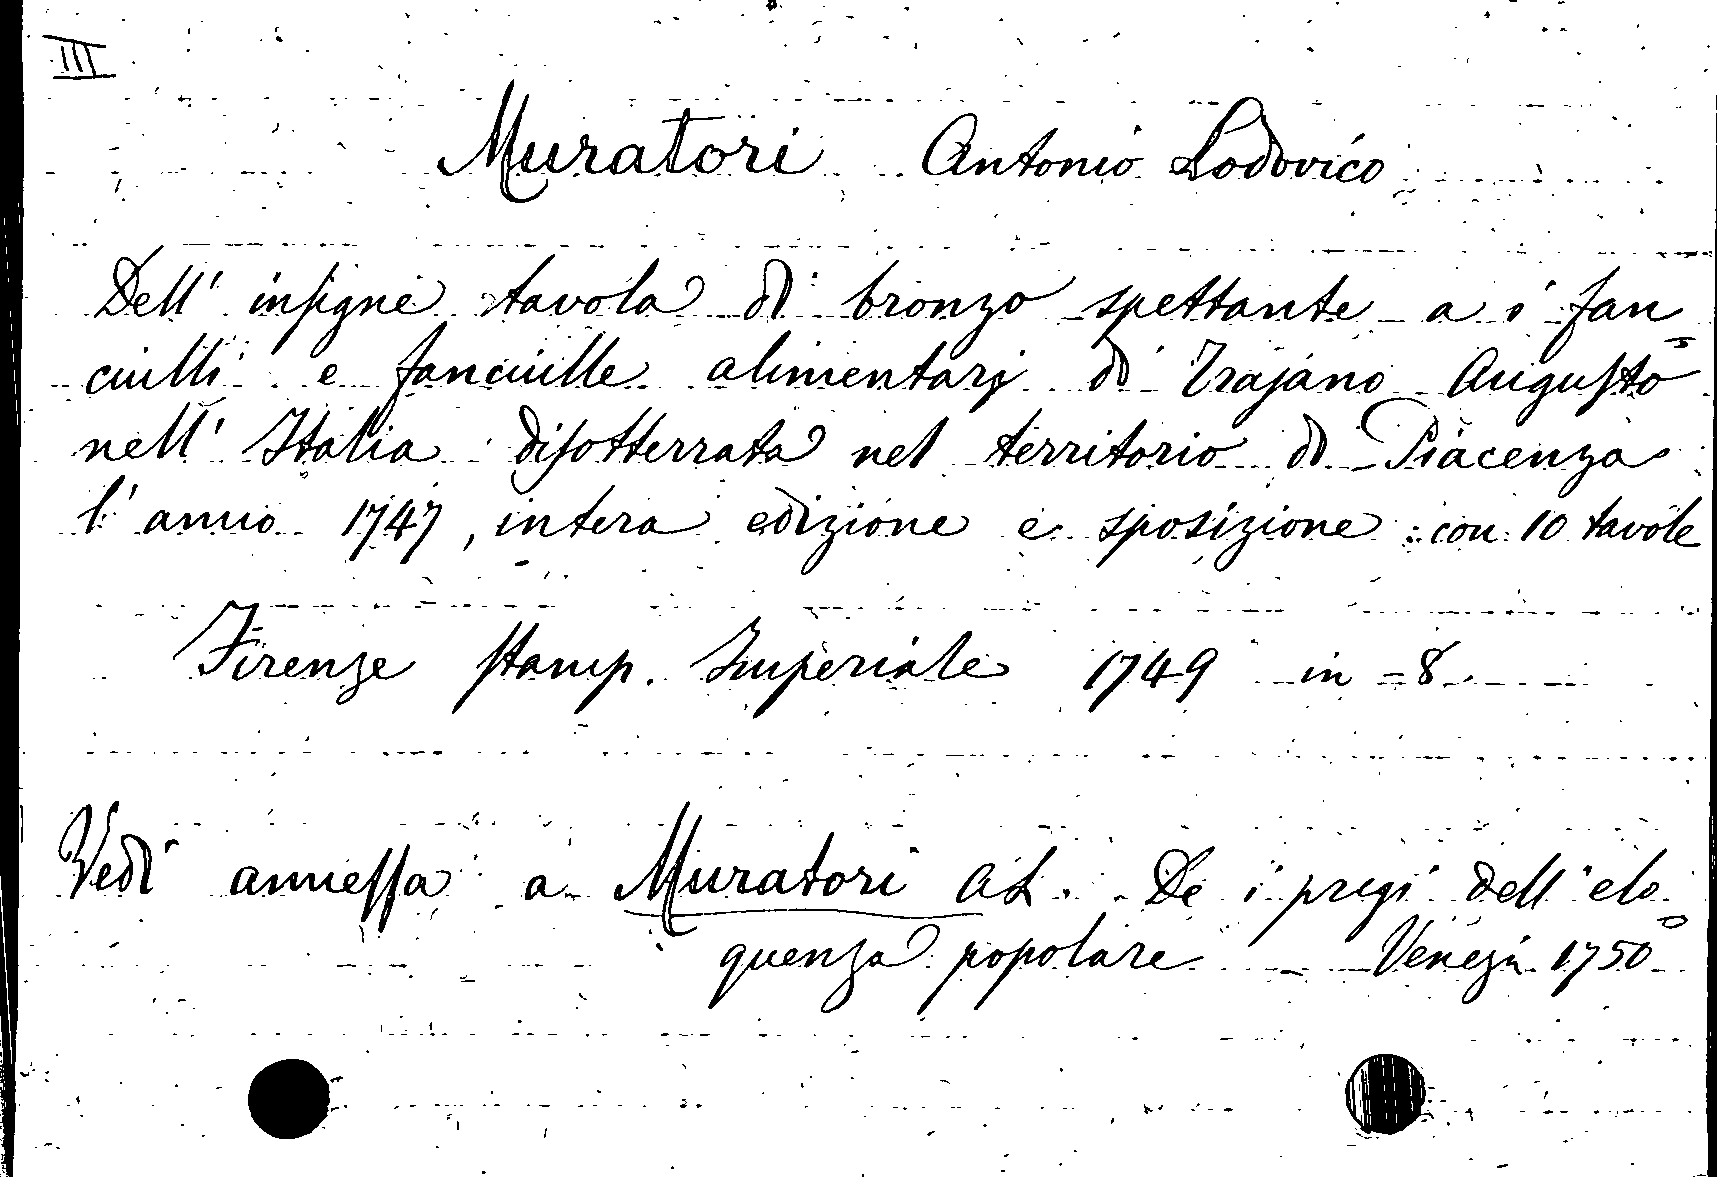 III
Muratori Antonio Lodovico
Dell' insigne tavola di bronzo spettante a i fan=
ciulli e fanciulle alimentarj di Trajano Augusto
nell' Italia disotterrata nel territorio di Piacenza
l' anno 1747, intera edizione e sposizione: con 10 tavole
Firenze Stamp. Imperiale 1749 in = 8
Vedi annessa a Muratori A L. De i pregi dell' elo=
quenza popolare Venezia 1750